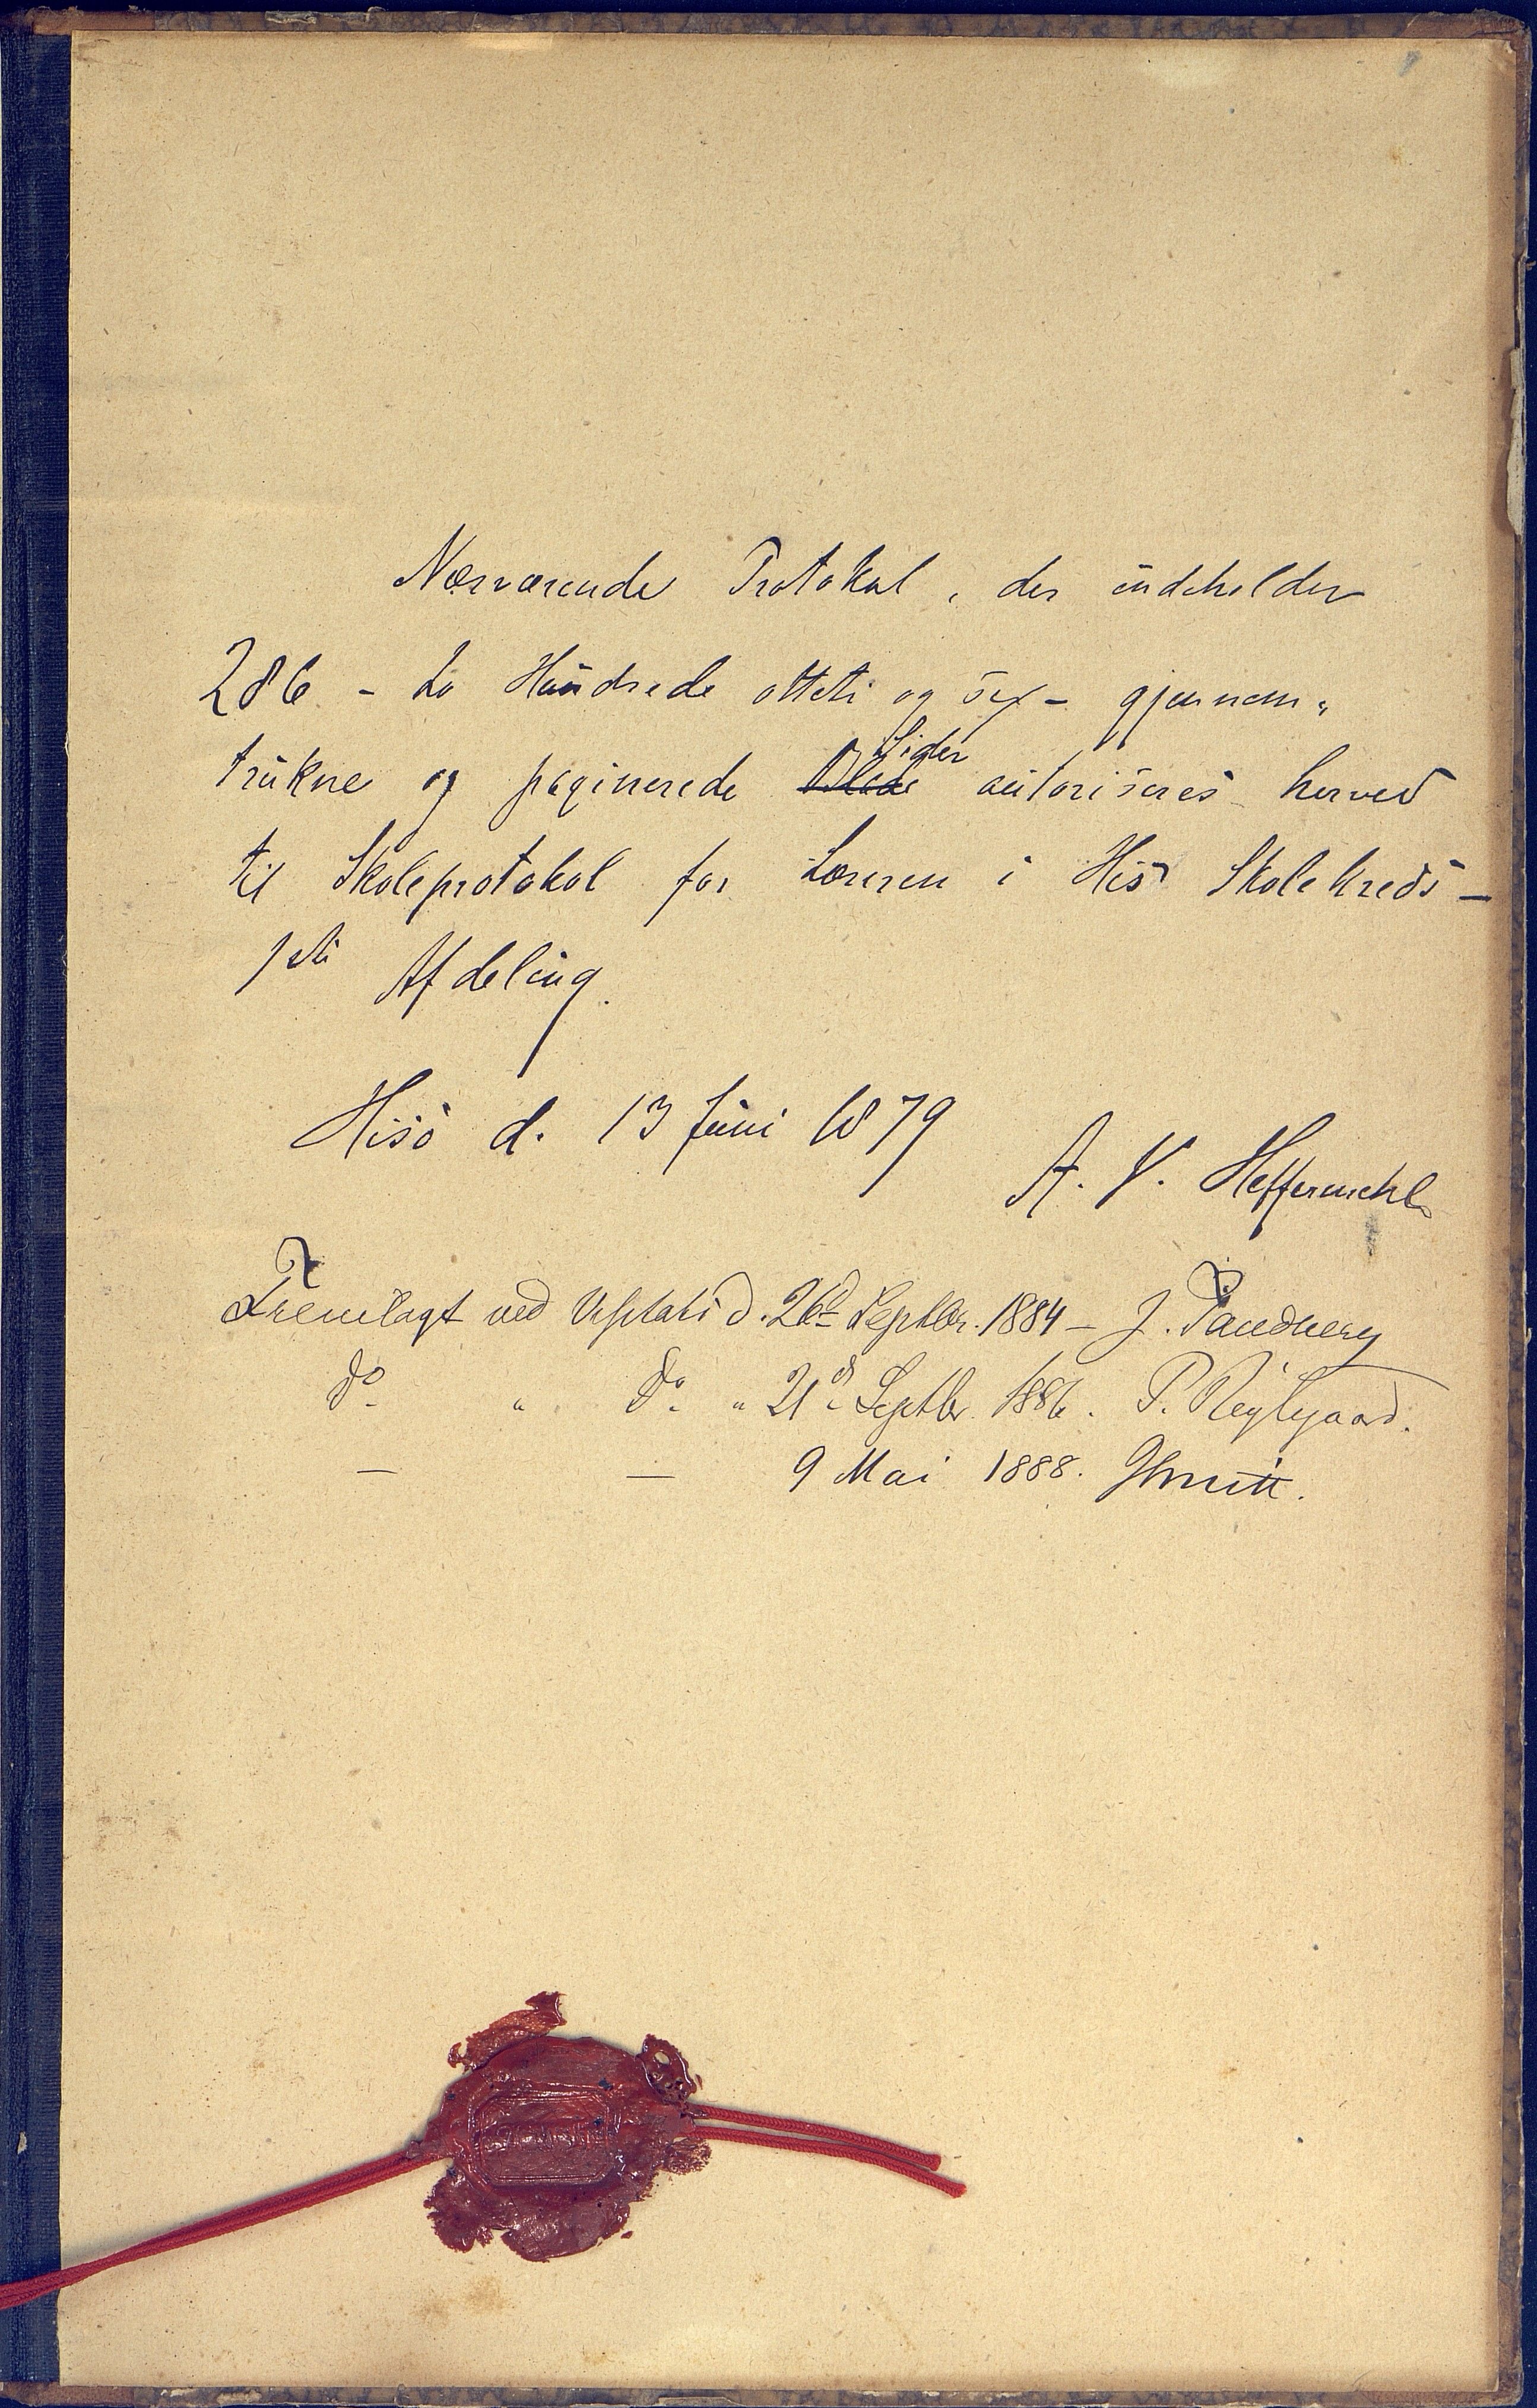 Nærværende Protokol, der indeholder
286 - to Hundrede otteti og sex - gjennem„
trukne og paginerede Blade Sider autoriseres herved
til Skoleprotokol for Læreren i His Skolekreds -
1ste Afdeling.
Hisö d. 13 Juni 1879
A. V. Heffermehl
Fremlagt ved Visitats d. 26d Septbr. 1884 - J. Sandberg
do „ do „ 21d Septbr. 1886. P.
— — 9 Mai 1888. Smitt.